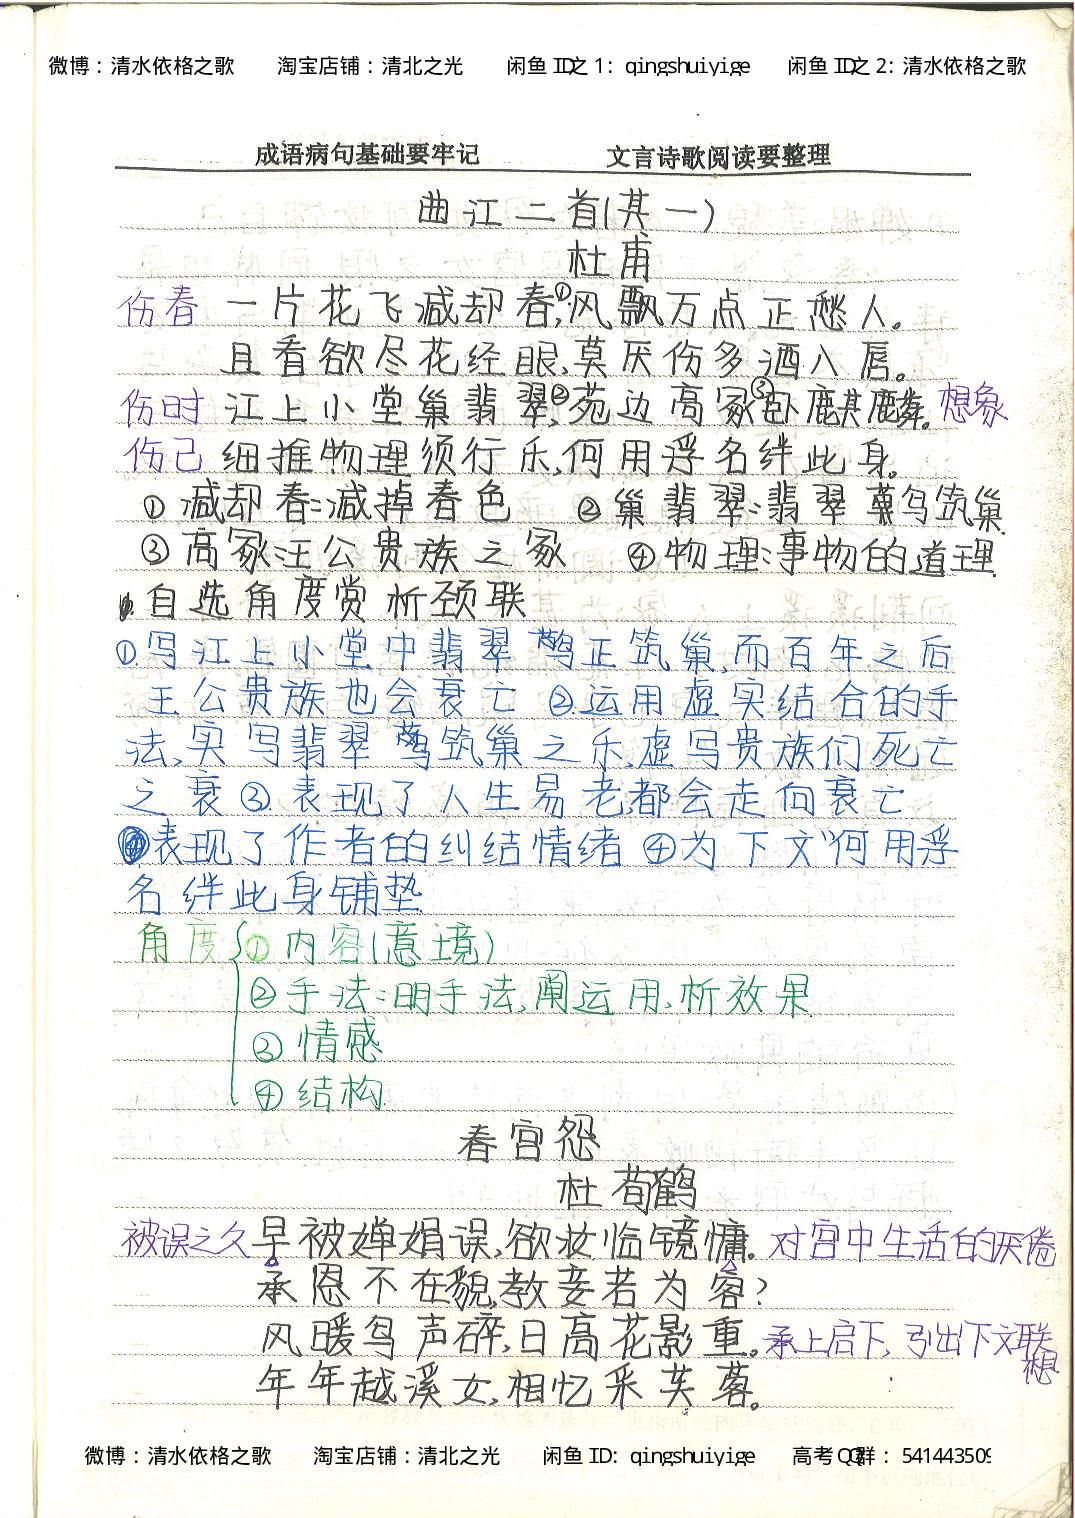 微博：清水依格之歌 淘宝店铺：清北之光 闲鱼 ID之 1：qingshuiyige 闲鱼 ID之 2：清水依格之歌
成语病句基础要牢记 文言诗歌阅读要整理
曲江二首(其一)
杜甫
伤春 一片花飞减却春①,风飘万点正愁人。
且看欲尽花经眼,莫厌伤多酒入唇。
伤时 江上小堂巢翡翠②,苑边高冢③卧麒麟。想象
伤己 细推物理须行乐,何用浮名绊此身。
① 减却春:减掉春色 ② 巢翡翠:翡翠鸟筑巢
③ 高冢:王公贵族之冢 ④ 物理:事物的道理
自选角度赏析颈联
①.写江上小堂中翡翠鸟正筑巢,而百年之后
王公贵族也会衰亡 ②.运用虚实结合的手
法,实写翡翠鸟筑巢之乐,虚写贵族们死亡
之衰 ③.表现了人生易老,都会走向衰亡
表现了作者的纠结情绪 ④为下文“何用浮
名绊此身铺垫
角度 ①内容(意境)
②手法:明手法,阐运用,析效果
③情感
④结构
春宫怨
杜荀鹤
被误之久 早被婵娟误,欲妆临镜慵。对宫中生活的厌倦
承恩不在貌,教妾若为容?
风暖鸟声碎,日高花影重。承上启下,引出下文联
想
年年越溪女,相忆采芙蓉。
微博：清水依格之歌 淘宝店铺：清北之光 闲鱼 ID：qingshuiyige 高考 QQ群：541443509